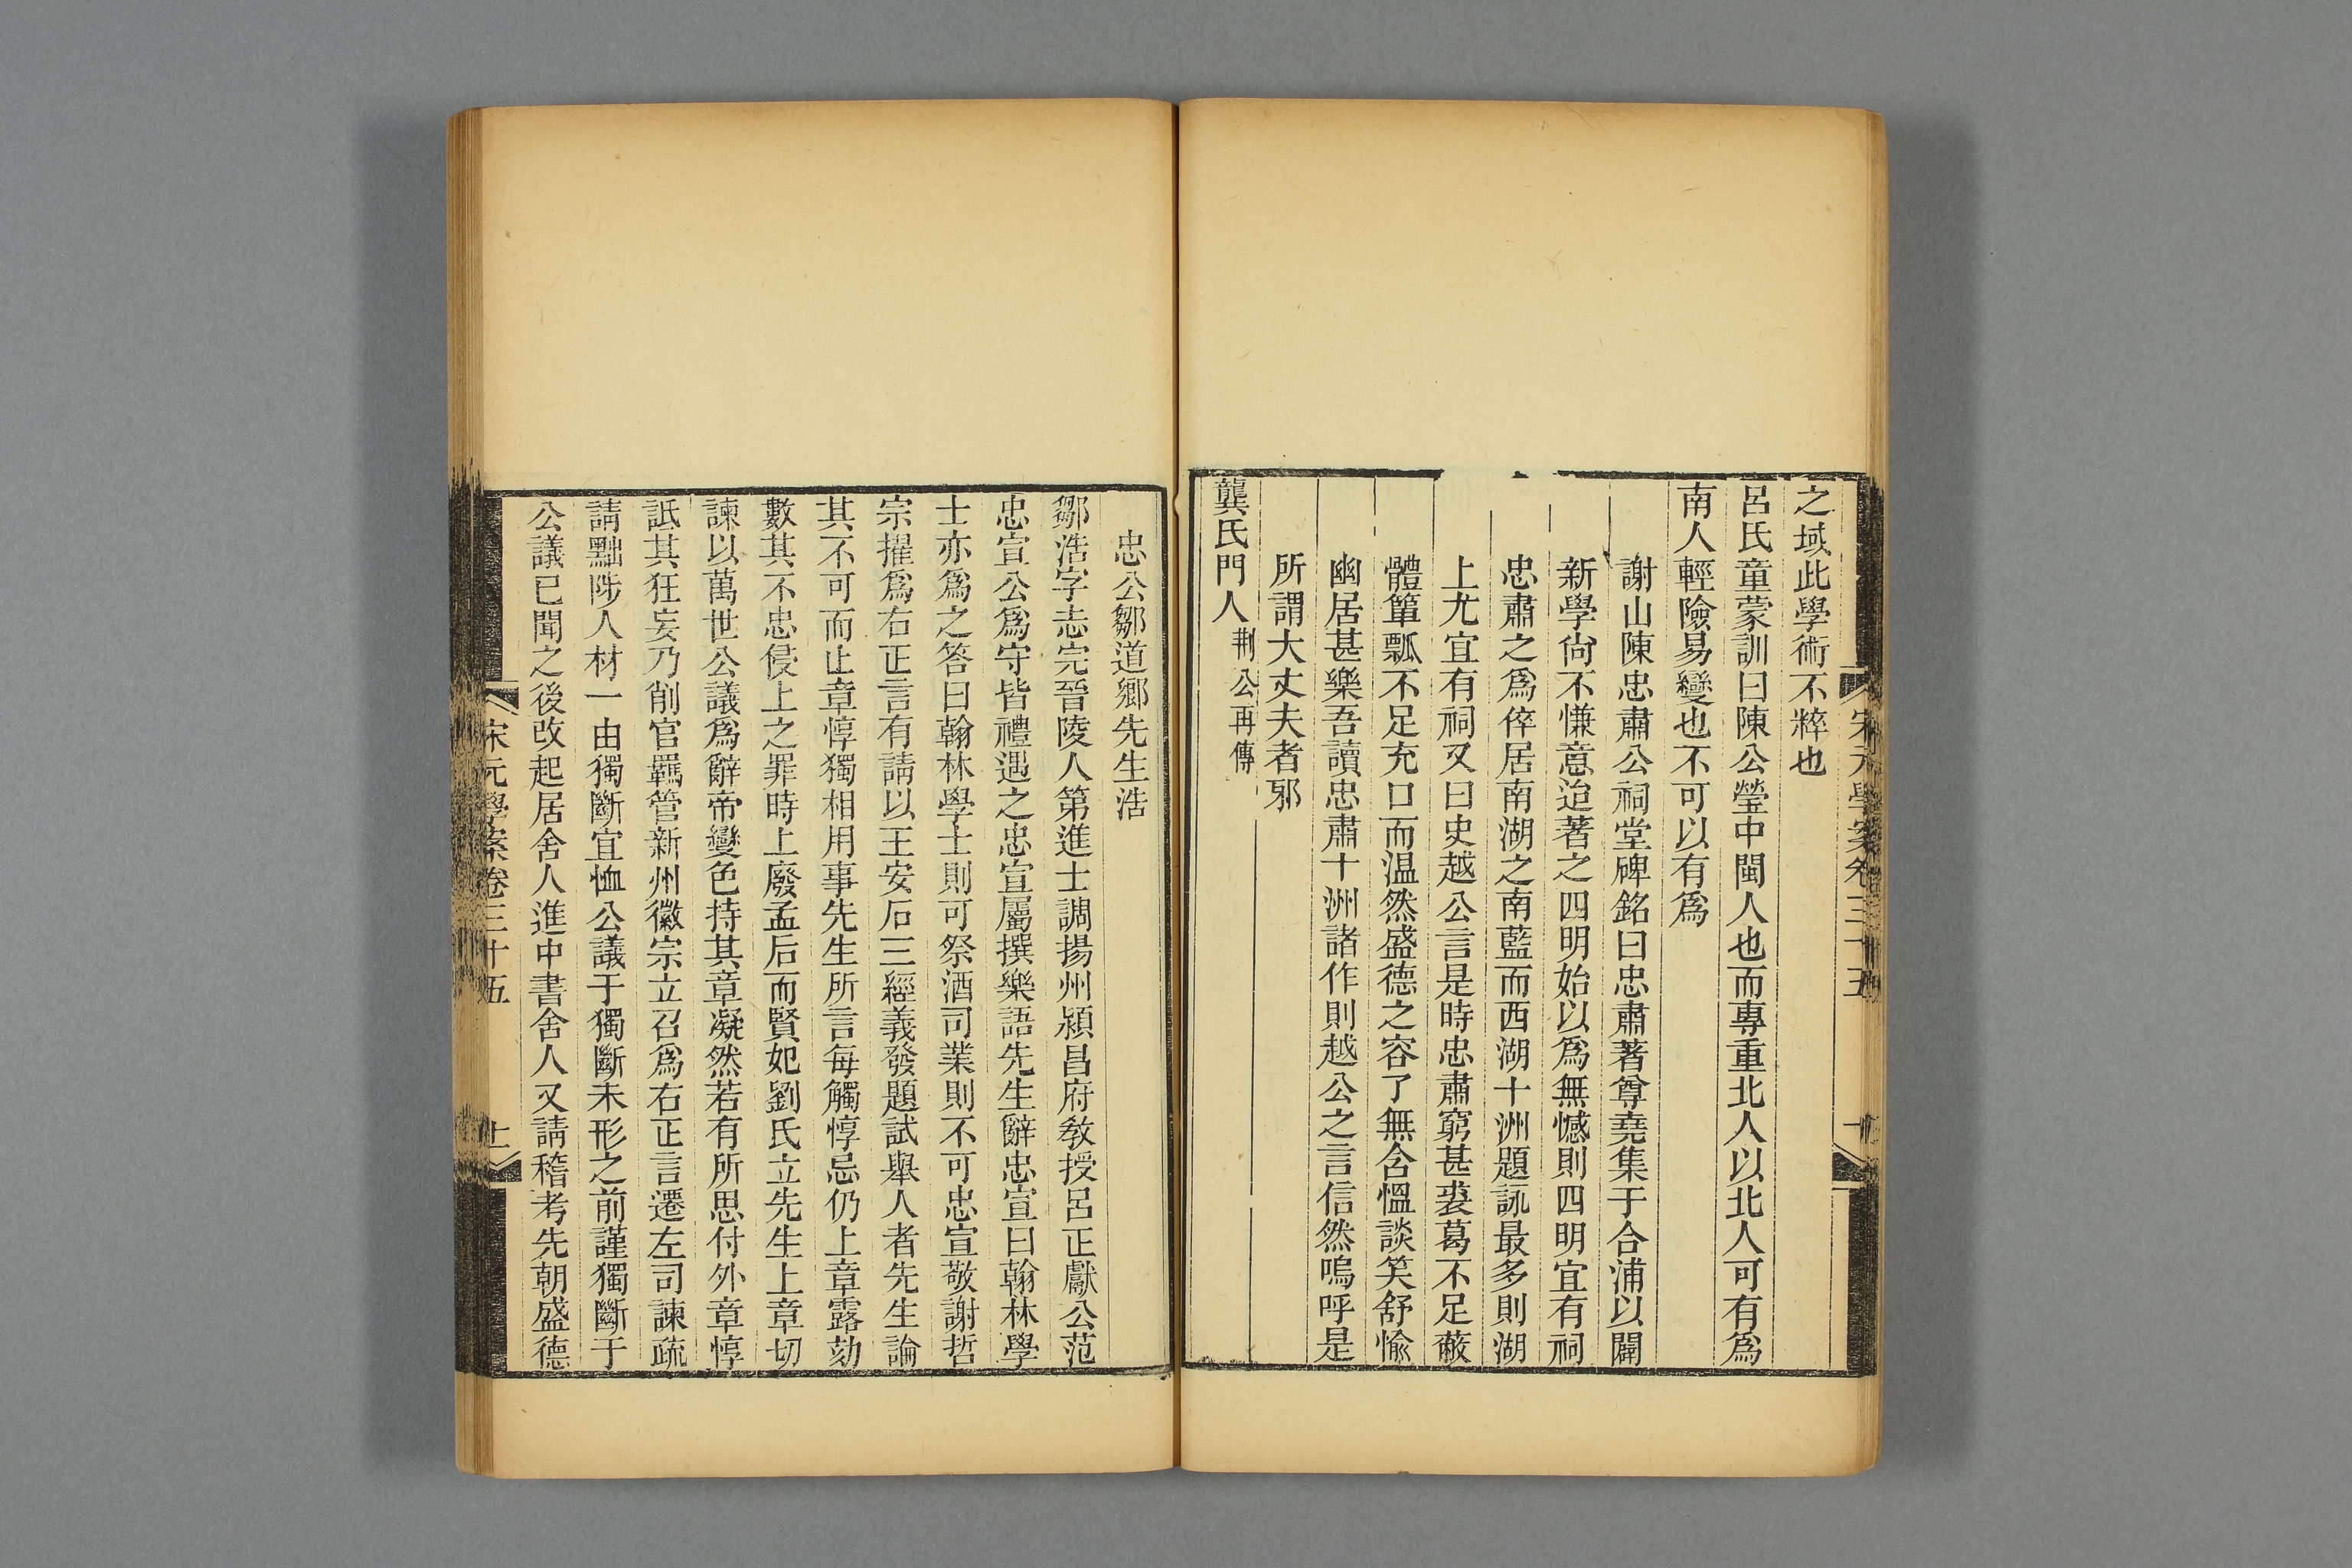 宋元學案卷三十五
之域此學術不粹也
呂氏童蒙訓曰陳公瑩中閩人也而專重北人以北人可有爲
南人輕險易變也不可以有爲
謝山陳忠肅公祠堂碑銘曰忠肅著尊堯集于合浦以闢
新學尙不慊意迨著之四明始以爲無憾則四明宜有祠
忠肅之爲倅居南湖之南藍而西湖十洲題詠最多則湖
上尤宜有祠又曰史越公言是時忠肅窮甚裘葛不足蔽
體簞瓢不足充口而温然盛德之容了無含慍談笑舒愉
幽居甚樂吾讀忠肅十洲諸作則越公之言信然嗚呼是
所謂大丈夫者邪
龔氏門人荆公再傳
忠公鄒道鄉先生浩
鄒浩字志完晉陵人第進士調揚州潁昌府敎授呂正獻公范
忠宣公爲守皆禮遇之忠宣屬撰樂語先生辭忠宣曰翰林學
士亦爲之答曰翰林學士則可祭酒司業則不可忠宣敬謝哲
宗擢爲右正言有請以王安石三經義發題試舉人者先生論
其不可而止章惇獨相用事先生所言每觸惇忌仍上章露劾
數其不忠侵上之罪時上廢孟后而賢妃劉氏立先生上章切
諫以萬世公議爲辭帝變色持其章凝然若有所思付外章惇
詆其狂妄乃削官羈管新州徽宗立召爲右正言遷左司諫疏
請黜陟人材一由獨斷宜恤公議于獨斷未形之前謹獨斷于
公議已聞之後改起居舍人進中書舍人又請稽考先朝盛德
宋元學案卷三十五